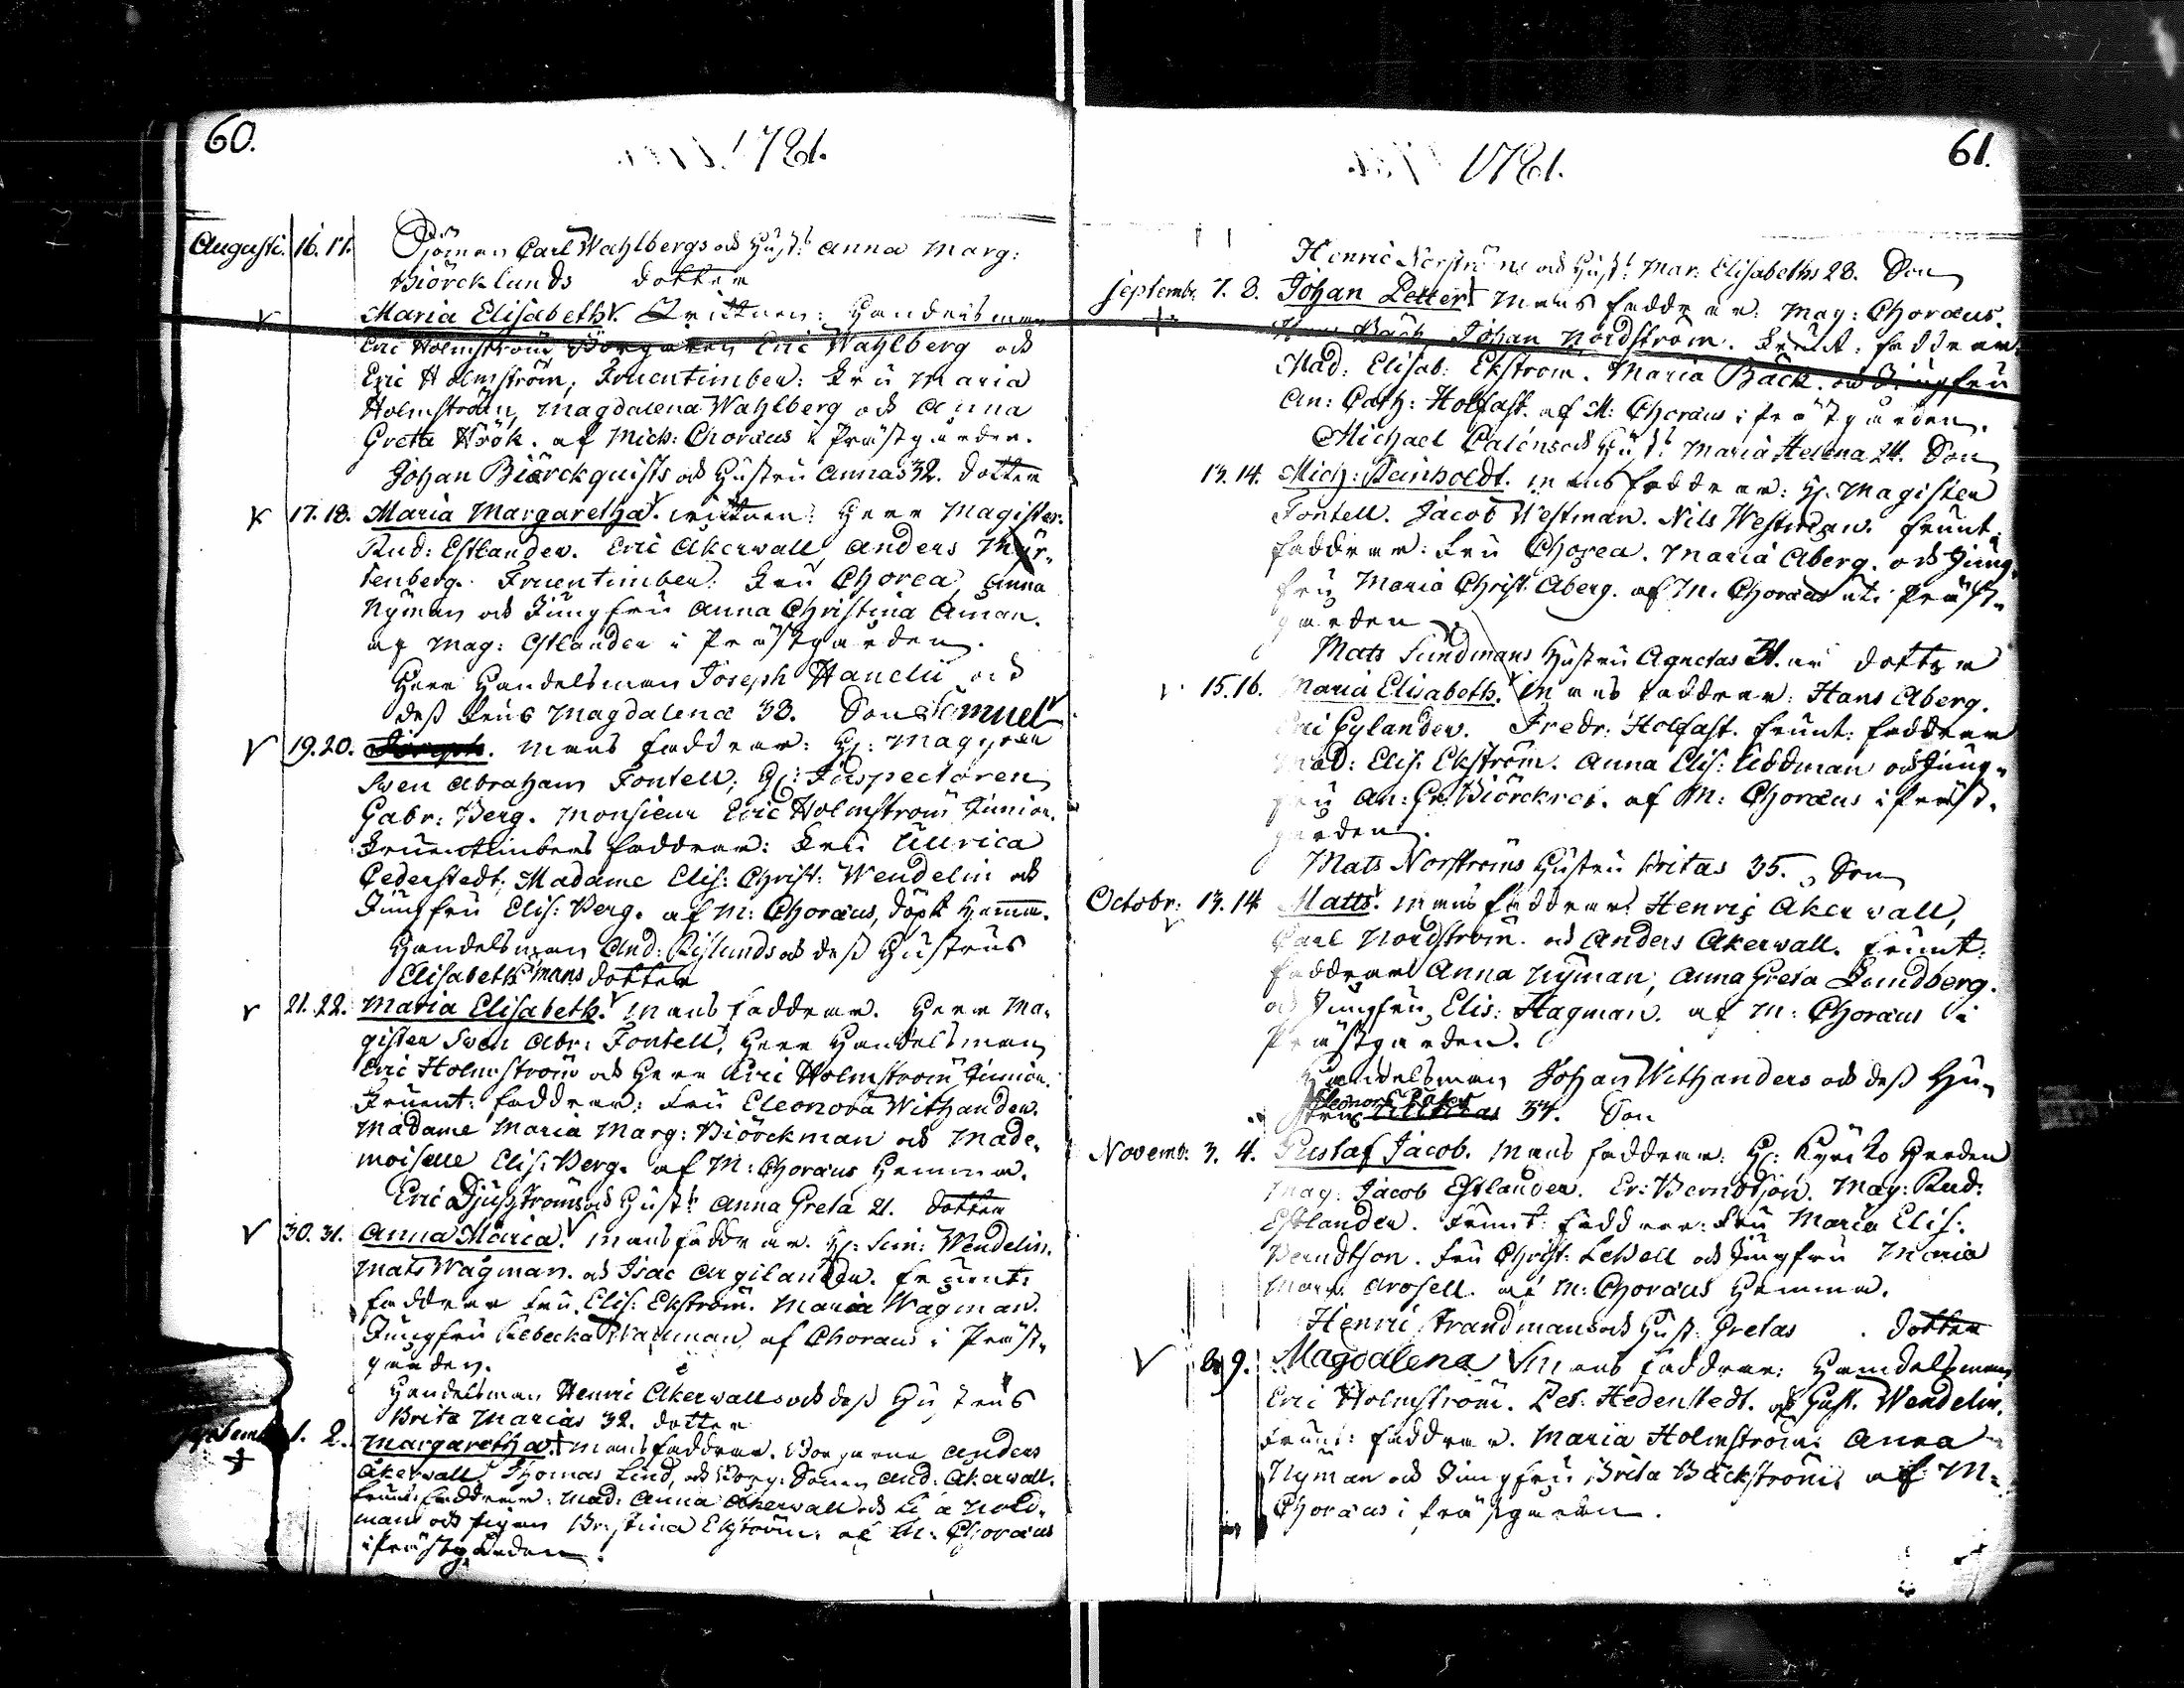 60.
1781.
Augusti. 16. 17. Sjöman Carl Wahlbergs och Hust: Anna Marg:
Biörcklunds dotter
Maria Elisabeth. Wittnen: Handelsman
Eric Holmström, Borgaren Eric Wahlberg och
Eric Holmström, Fruentimber: Fru Maria
Holmström, Magdalena Wahlberg och Anna
Greta Höök. af Mich: Choræus i Prästgården.
Johan Biörckquists och Hustru Annas 32. dotter
17. 18. Maria Margaretha. Wittnen: Herr Magister
Rud: Estlander. Eric Akerwall, Anders
tenberg. Fruentimber: Fru Chorea, Anna
Nyman och Jungfru Anna Christina Åman.
af Mag: Estlander i Prästgården.
Herr Handelsman Joseph Hanelii och
dess Frus Magdalenæ 38. Son Samuel
19. 20. Joseph. Mans faddrar: H: Magistren
Swen Abraham Fontell, H: Inspectoren
Gabr: Berg. Monsieur Eric Holmström Junior.
Fruentimbers faddrar: Fru Ulrica
Cederstedt, Madame Elis: Christ: Wendelin och
Jungfru Elis: Berg. af M: Choræus, döpt hemma.
Handelsman And: Riglunds och dess Hustrus
Elisabeth mans dotter
21. 22. Maria Elisabeth. Mans faddrar. Herr Ma-
gister Swen Abr: Fontell, Herr Handelsman
Eric Holmström och Herr Eric Holmström Junior.
Fruent: faddrar: Fru Eleonora Withander.
Madame Maria Marg: Biörckman och Made-
moiselle Elis: Berg. af M: Choræus hemma.
Eric Djupströms och Hust: Anna Greta 21. dotter
30. 31. Anna Maria. Mans faddrar. H: Sim: Wendelin.
Mats Wågman. och Isac Argilander. Fruent:
faddrar Fru Elis: Ekström. Maria Wågman.
Jungfru Rebecka af Choræus i Präst-
gården.
Handelsman Henric Akerwalls och dess Hustrus
Brita Marias 32. dotter
1. 2. Margaretha. Mans faddrar. Borgarne Anders
Akerwall, Thomas Lind, och Borg: Sonen And: Akerwall.
Frunt: faddrar: Mad: Anna Akerwall och
man och Pigan Ekström. af M: Choræus
i Prästgården.
61.
1781.
Henric Norströms och Hust: Mar: Elisabeths 28. Son
Septemb: 7. 8. Johan Petter. Mans faddrar: Mag: Choræus.
Bäck, Johan Nordström. Frunt: faddrar
Mad: Elisab: Ekström. Maria Bäck. och Jungfru
An: Cath: Holfast. af M: Choræus i Prästgården.
Michael Calens och Hust: Maria Helena 24. Son
13. 14. Mich: Reinholdt. Mans faddrar: H. Magister
Fontell. Jacob Westman. Nils Westman. Frunt:
faddrar: Fru Chorea. Maria Aberg. och Jung-
fru Maria Christ: Aberg. af M. Choræus uti Präst-
gården
Mats Sundmans Hustru Agnetas 31. år dotter
15. 16. Maria Elisabeth. Mans faddrar: Hans Aberg.
Eric Gylander. Fredr: Holfast. Frunt: faddrar
Mad: Elis: Ekström. Anna Elis: Uddman och Jung-
fru An: Gr: af M: Choræus i Präst-
gården.
Mats Norströms Hustru Britas 35. Son
Octobr: 13. 14. Matts. Mans faddrar Henric Akerwall,
Carl Nordström. och Anders Akerwall. Frunt:
faddrar Anna Nyman, Anna Greta Lundberg.
och Jungfru Elis: Hagman. af M: Choræus i
Prästgården.
Handelsman Johan Withanders och dess Hu-
Eleonora
strus 34. Son
Novemb: 3. 4. Gustaf Jacob. Mans faddrar: H: Kyrko Herden
Mag: Jacob Estlander. Er: Berndtson. Mag: Rud:
Estlander. Frunt: faddrar: Fru Maria Elis:
Berndtson. Fru Christ: och Jungfru Maria
Marg: Arosell. af M: Choræus hemma.
Henric Strandmans och Hust: Gretas dotter
8. 9. Magdalena Mans faddrar: Handelsman
Eric Holmström. Pet: Hedenstedt. och Gust. Wendelin.
Frunt: faddrar. Maria Holmström, Anna
Nyman och Jungfru Brita Bäckström. af M:
Choræus i Prästgården.